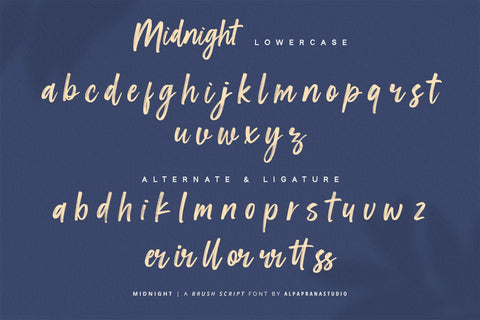 Midnight LOWERCASE
a b c d e f g h i j k l m n o p q r s t
u v w x y z
ALTERNATE & LIGATURE
a b d h i k l m n o p r s t u v w z
er ir ll or ur tt ss
MIDNIGHT | A BRUSH SCRIPT FONT BY ALPAPRANASTUDIO